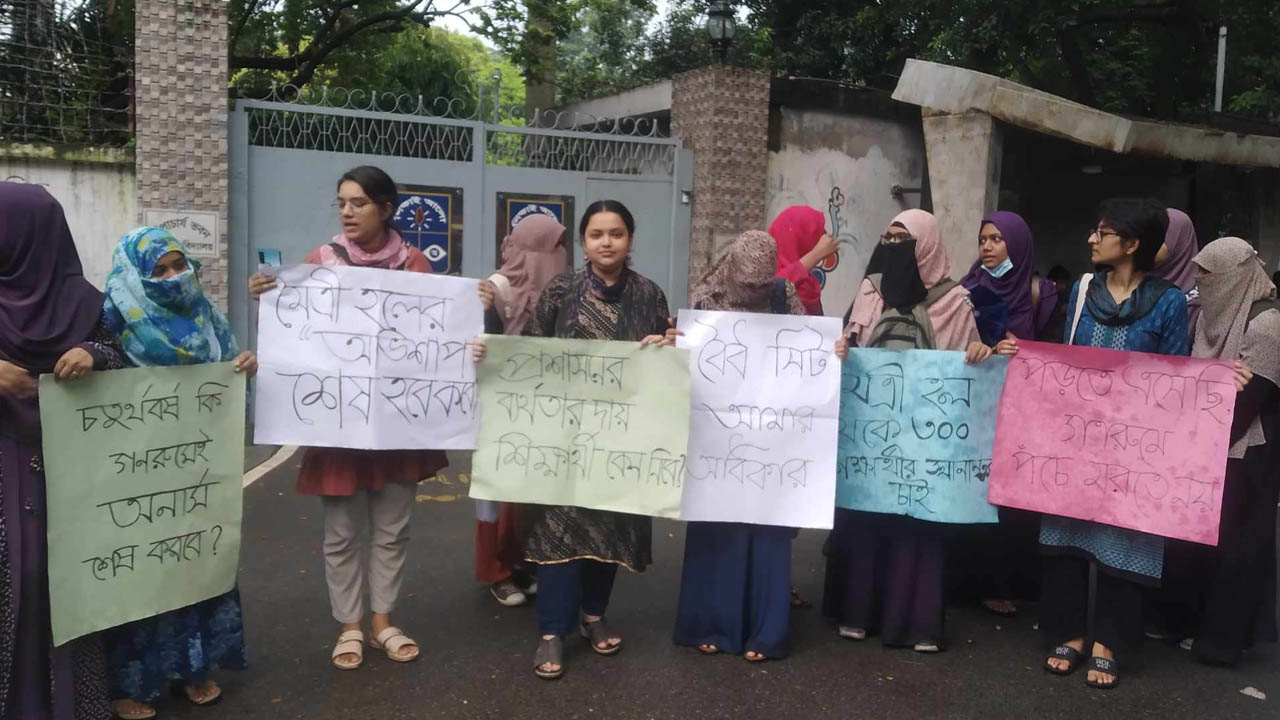 চতুর্থবর্ষ কি
গনরুমেই
অনার্স
শেষ করবে?
মৈত্রী হলের
"অভিশাপ
শেষ হবে কবে
প্রশাসনের
ব্যর্থতার দায়
শিক্ষার্থী কেন নিবে?
বৈধ সিট
আমার
অধিকার
মৈত্রী হল
থেকে ৩০০
শিক্ষার্থীর স্থানান্তর
চাই
পড়তে এসেছি,
গণরুমে
পঁচে মরতে নয়